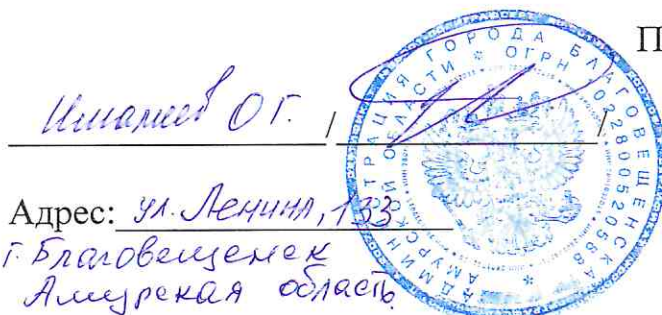 П
Имамеев О Г. / /
Адрес: ул. Ленина, 133
г. Благовещенск
Амурская область
АДМИНИСТРАЦИЯ ГОРОДА БЛАГОВЕЩЕНСКА
АМУРСКОЙ ОБЛАСТИ * ОГРН 1022800520588 *